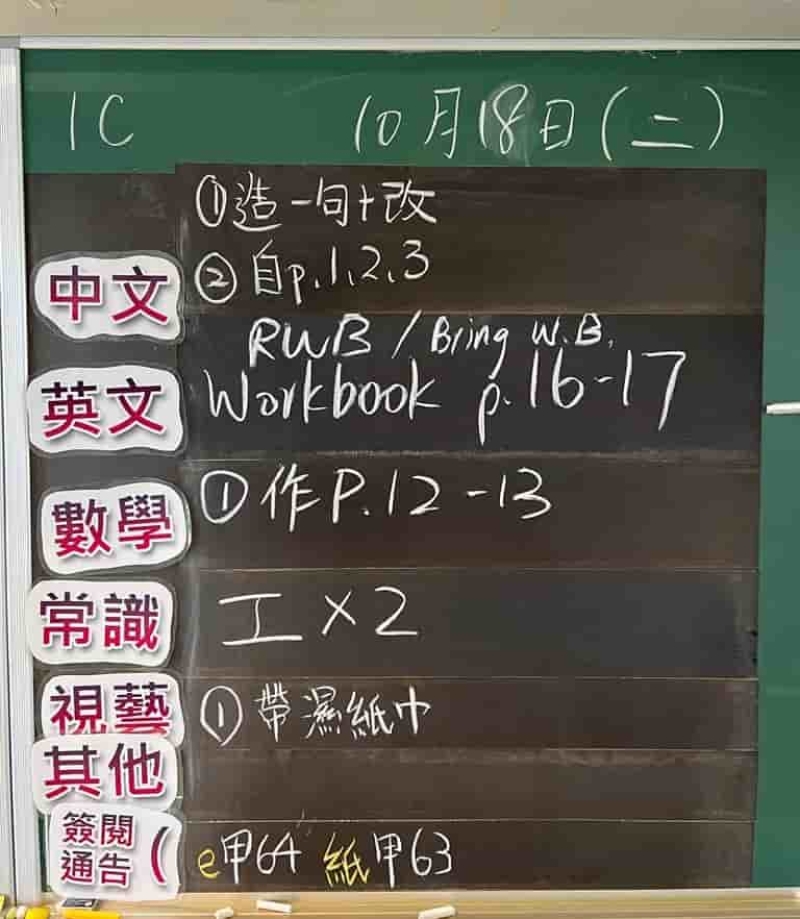 1C 10月18日(二)
①造一句+改
中文 ②自p.1、2、3
RWB / Bring W.B.
英文 Workbook p.16-17
數學 ①作P.12-13
常識 工×2
視藝 ①帶濕紙巾
其他
簽閱
通告( e甲64 紙甲63